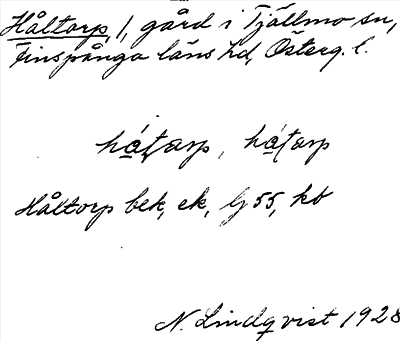 Håltorp, 1, gård i Tjällmo sn,
Finspånga läns hd, Österg. l.
hátarp, hátarp
Håltorp bek, ek, lj 55, kb
N. Lindqvist 1928